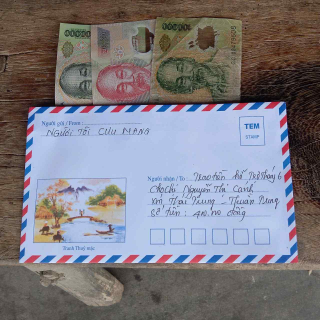 Người gửi / From:
NGƯỜI TÔI CƯU MANG
TEM
STAMP
Người nhận / To: Trao tiền hỗ trợ tháng 6
cho chị Nguyễn Thị Cạnh
Xm, Thái Trung - Thuận Hưng
Số tiền: đồng
Tranh Thuỷ mặc